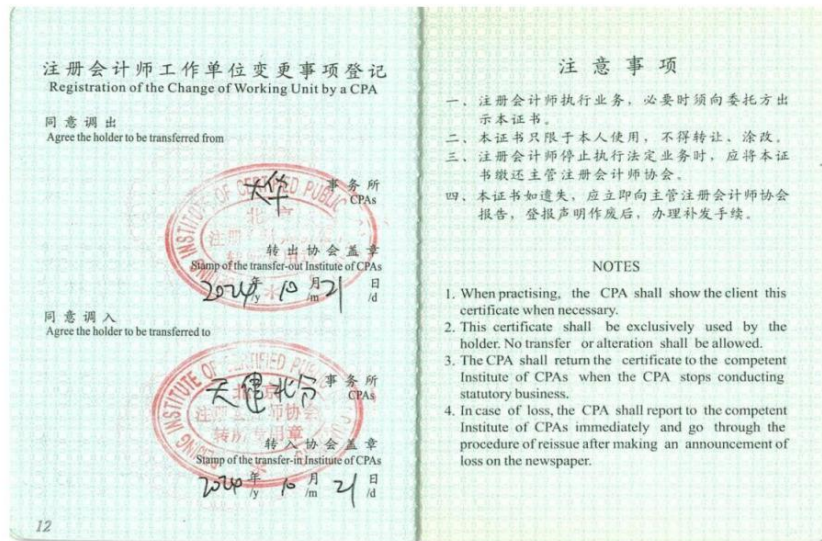 注册会计师工作单位变更事项登记
Registration of the Change of Working Unit by a CPA
同意调出
Agree the holder to be transferred from
大华 事务所
CPAs
转出协会盖章
Stamp of the transfer-out Institute of CPAs
2024年 10月 21日
/y /m /d
同意调入
Agree the holder to be transferred to
天健北分 事务所
CPAs
转入协会盖章
Stamp of the transfer-in Institute of CPAs
2024年 10月 21日
/y /m /d
INSTITUTE OF CERTIFIED PUBLIC
北京
注册
INSTITUTE OF CERTIFIED PUBLIC
北京
注册会计师协会
转所专用章
12
注意事项
一、注册会计师执行业务，必要时须向委托方出
示本证书。
二、本证书只限于本人使用，不得转让、涂改。
三、注册会计师停止执行法定业务时，应将本证
书缴还主管注册会计师协会。
四、本证书如遗失，应立即向主管注册会计师协会
报告，登报声明作废后，办理补发手续。
NOTES
1. When practising, the CPA shall show the client this
certificate when necessary.
2. This certificate shall be exclusively used by the
holder. No transfer or alteration shall be allowed.
3. The CPA shall return the certificate to the competent
Institute of CPAs when the CPA stops conducting
statutory business.
4. In case of loss, the CPA shall report to the competent
Institute of CPAs immediately and go through the
procedure of reissue after making an announcement of
loss on the newspaper.